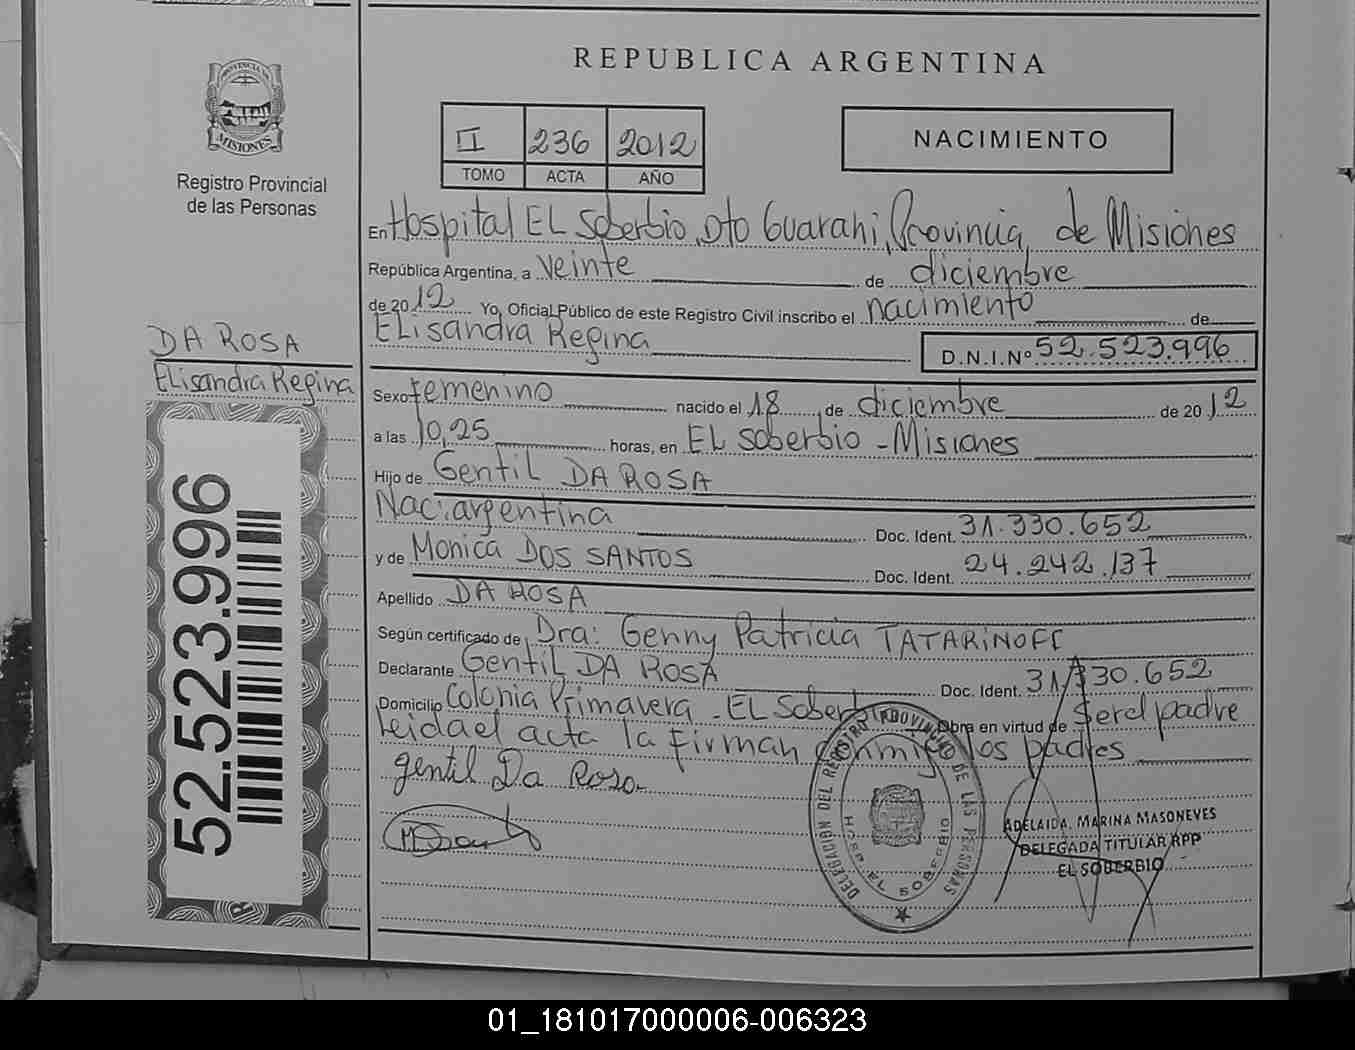 REPUBLICA ARGENTINA
PROVINCIA DE
MISIONES
Registro Provincial
de las Personas
II 236 2012
TOMO ACTA AÑO
NACIMIENTO
En Hospital EL Soberbio, Dto Guarani, Provincia de Misiones
República Argentina, a veinte de diciembre
de 2012 Yo, Oficial Público de este Registro Civil inscribo el nacimiento de
Elisandra Regina D.N.I.Nº 52.523.996
DA ROSA
Elisandra Regina
52.523.996
Sexo femenino nacido el 18 de diciembre de 2012
a las 10,25 horas, en EL Soberbio - Misiones
Hijo de Gentil DA ROSA
Nac: argentina Doc. Ident. 31.330.652
y de Monica DOS SANTOS Doc. Ident. 24.242.137
Apellido DA ROSA
Según certificado de Dra: Genny Patricia TATARINOFF
Declarante Gentil DA ROSA Doc. Ident. 31.330.652
Domicilio Colonia Primavera - EL Soberbio Obra en virtud de Ser el padre
Leida el acta la firman conmigo los padres
gentil Da Rosa
DELEGACIÓN DEL REGISTRO PROVINCIAL DE LAS PERSONAS
HOSP. EL SOBERBIO
ADELAIDA MARINA MASONEVES
DELEGADA TITULAR RPP
EL SOBERBIO
01_181017000006-006323